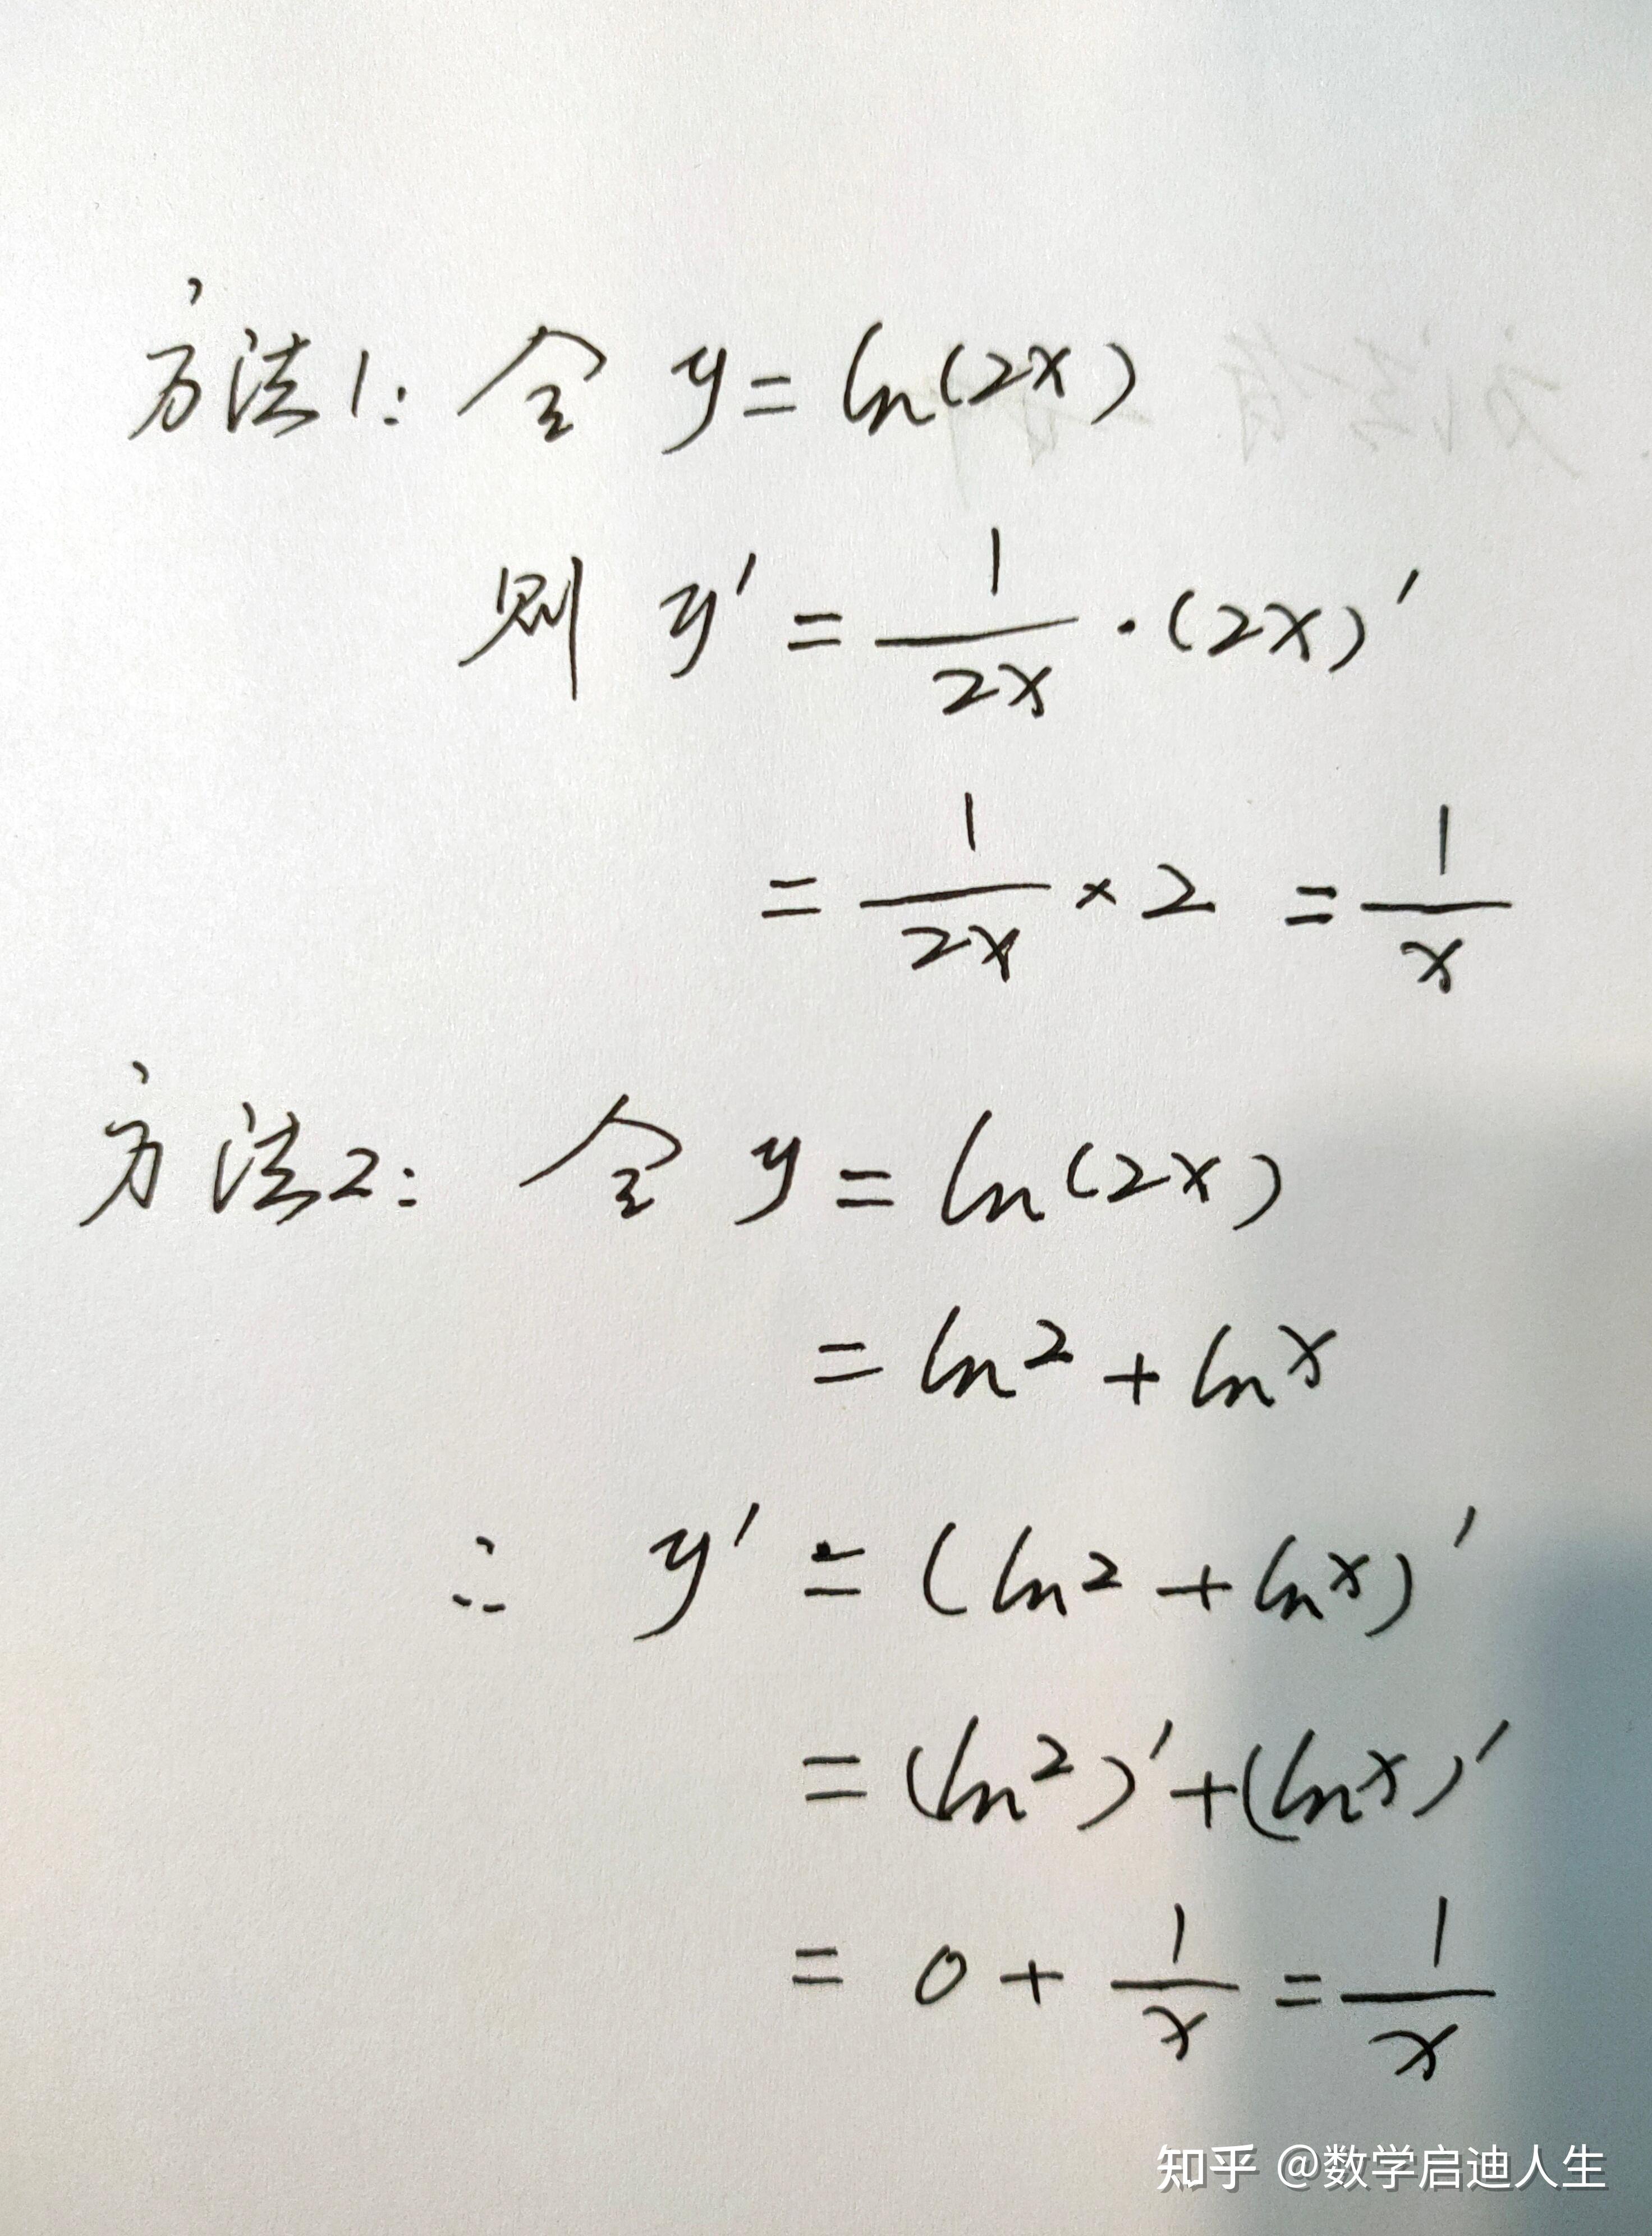 方法1: 令 y = ln(2x)
则 y' = 1/2x · (2x)'
= 1/2x × 2 = 1/x
方法2: 令 y = ln(2x)
= ln2 + lnx
∴ y' = (ln2 + lnx)'
= (ln2)' + (lnx)'
= 0 + 1/x = 1/x
知乎 @数学启迪人生